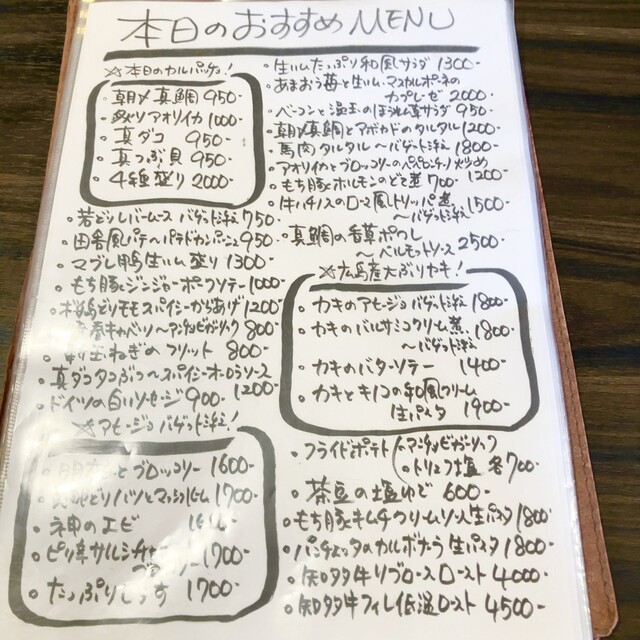 本日のおすすめMENU
☆本日のカルパッチョ!
朝〆真鯛 950-
炙りアオリイカ 1000-
真ダコ 950-
真つぶ貝 950-
4種盛り 2000-
若どりレバームース バゲット添え 750-
田舎風パテ〜パテドカンパーニュ 950-
マグレ鴨生ハム盛り 1300-
もち豚とジンジャーポークソテー 1000-
桜島どりモモスパイシーからあげ 1200-
春キャベツ〜アンチョビガーリック 800-
新玉ねぎのフリット 800-
真ダコタコぶつ〜スパイシーオーロラソース 1200-
ドイツの白いソーセージ 900-
☆アヒージョ バゲット添え!
とブロッコリー 1600-
どりハツとマッシュルーム 1700-
神のエビ
ピリ辛サルシッチャ 1700-
たっぷりしらす 1700-
生ハムたっぷり和風サラダ 1300-
あまおう苺と生ハム、マスカルポーネのカプレーゼ 2000-
ベーコンと温玉のほうれん草サラダ 950-
朝〆真鯛とアボカドのタルタル 1200-
馬肉タルタル〜バゲット添え 1800-
アオリイカとブロッコリーのペペロンチーノ炒め 1200-
もち豚ホルモンのどて煮 700-
牛ハチノスのローマ風トリッパ煮 〜バゲット添え 1500-
真鯛の香草ポワレ 〜ベルモットソース 2500-
☆広島産大ぶりカキ!
カキのアヒージョ バゲット添え 1800-
カキのバルサミコクリーム煮 〜バゲット添え 1800-
カキのバターソテー 1400-
カキとキノコの和風クリーム生パスタ 1900-
フライドポテト アンチョビガーリック
トリュフ塩 各700-
茶豆の塩ゆで 600-
もち豚キムチクリームソース生パスタ 1800-
パンチェッタのカルボナーラ生パスタ 1800-
知多牛リブロースロースト 4000-
知多牛フィレ低温ロースト 4500-